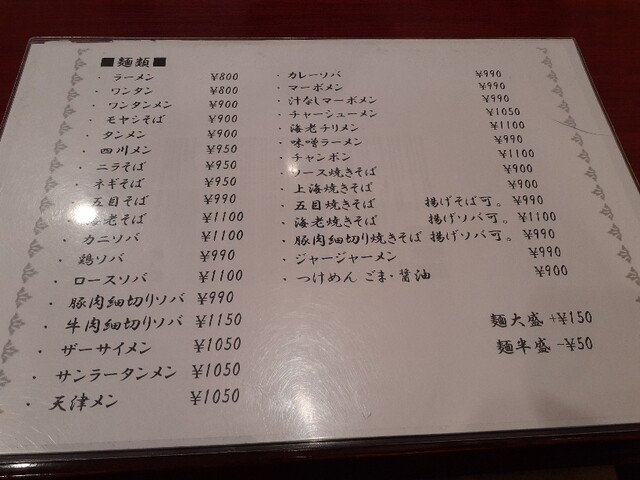 ■麺類■
・ ラーメン ¥800
・ ワンタン ¥800
・ ワンタンメン ¥900
・ モヤシそば ¥900
・ タンメン ¥900
・ 四川メン ¥950
・ ニラそば ¥950
・ ネギそば ¥950
五目そば ¥990
老そば ¥1100
・ カニソバ ¥1100
・ 鶏ソバ ¥990
・ ロースソバ ¥1100
・ 豚肉細切りソバ ¥990
・ 牛肉細切りソバ ¥1150
・ ザーサイメン ¥1050
・ サンラータンメン ¥1050
・ 天津メン ¥1050
・ カレーソバ ¥990
・ マーボメン ¥990
・ 汁なしマーボメン ¥990
・ チャーシューメン ¥1050
・ 海老チリメン ¥1100
・ 味噌ラーメン ¥990
・ チャンポン ¥1100
・ ソース焼きそば ¥900
・ 上海焼きそば ¥900
・ 五目焼きそば 揚げそば可。 ¥990
・ 海老焼きそば 揚げソバ可。 ¥1100
・ 豚肉細切り焼きそば 揚げソバ可。 ¥990
・ ジャージャーメン ¥990
・ つけめん ごま・醤油 ¥900
麺大盛 +¥150
麺半盛 -¥50